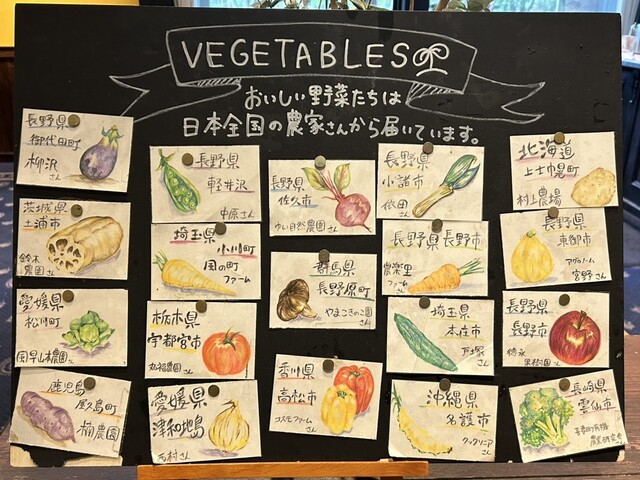 VEGETABLES
おいしい野菜たちは
日本全国の農家さんから届いています。
長野県
御代田町
柳沢
さん
茨城県
土浦市
鈴木
農園さん
愛媛県
松川町
さん
鹿児島
屋久島町
楠農園
長野県
軽井沢
中原さん
埼玉県
小川町
風の町
ファーム
栃木県
宇都宮市
農園さん
愛媛県
津和地島
西村さん
長野県
佐久市
ゆい自然農園さん
群馬県
長野原町
やまこきのこ園
さん
香川県
高松市
コスモファーム
さん
長野県
小諸市
依田
さん
長野県長野市
農楽里
ファーム
さん
埼玉県
本庄市
戸塚
さん
沖縄県
名護市
クックソニア
さん
北海道
上士幌町
村上農場
長野県
東御市
アグロノーム
宮野さん
長野県
長野市
徳永
果樹園さん
長崎県
雲仙市
吾妻町有機
農業研究会
さん